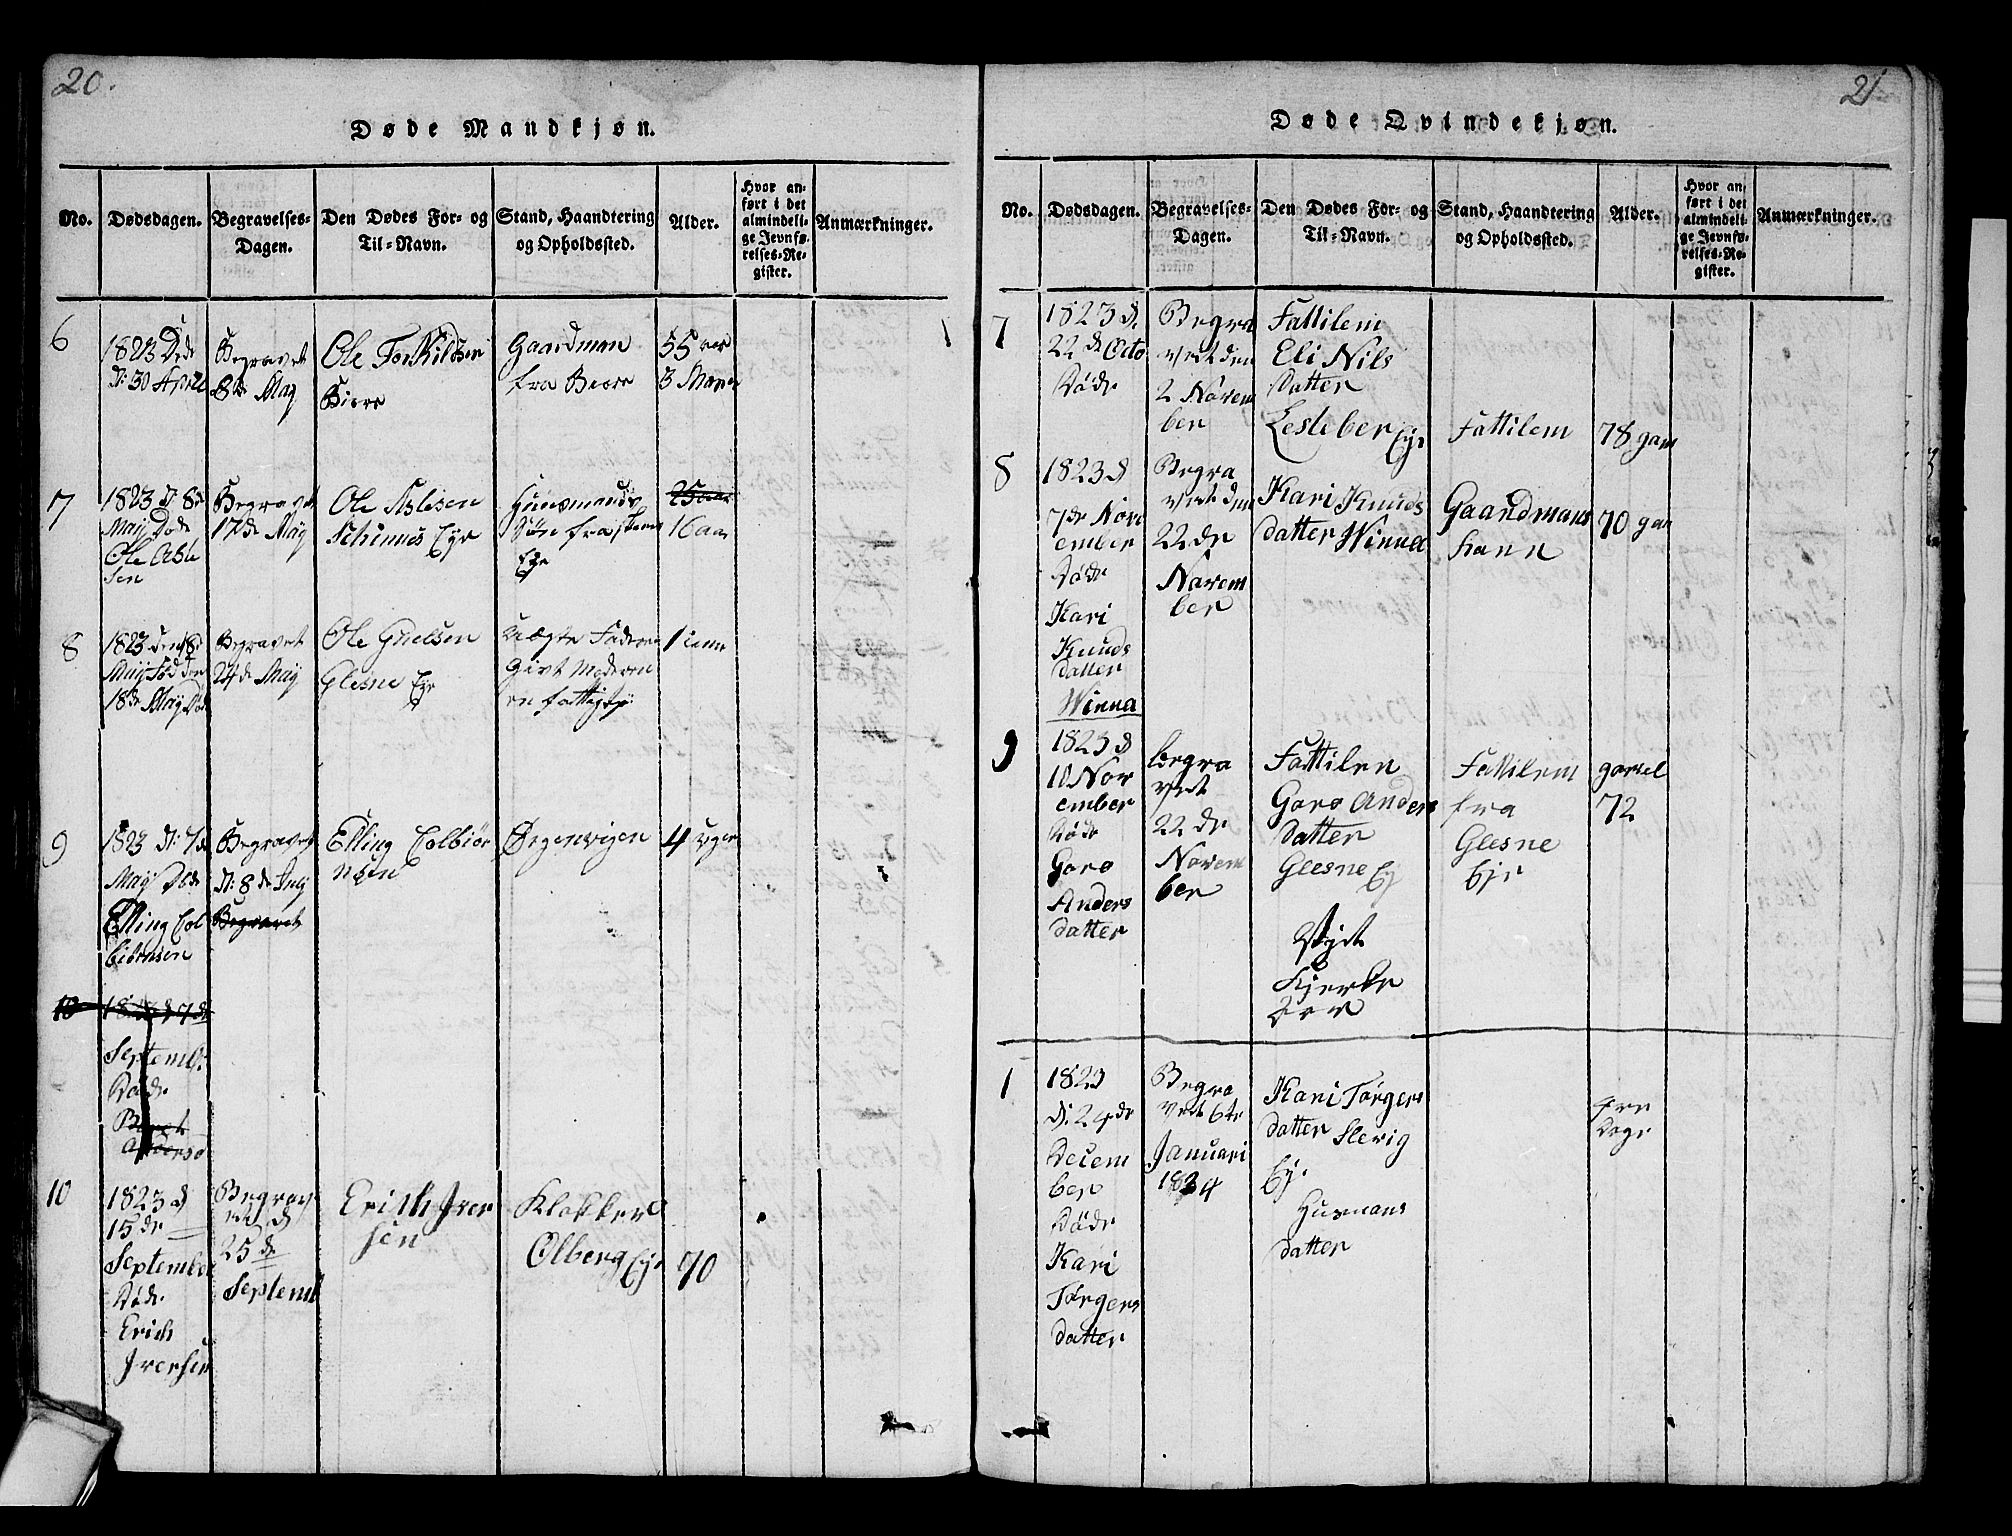 20.
Døde Mandkjøn.
No. Dødsdagen. Begravelses-Dagen. Den Dødes For- og Til-Navn. Stand, Haandtering og Opholdssted. Alder. Hvor anført i det almindelige Jevnførelses-Register. Anmærkninger.
6
1823 Død
d: 30 April
Begravet
8de May
Ole Torkildsen
Biere
Gaardman
fra Biere
55
3
7
1823 d: 8de
May Død
Ole
sen
Begravet
17de May
Ole Aslesen
Eye
Huusmands
Søn fra
Eye
16 aar
8
1823 den 8de
May Fød den
18de May Død
Begravet
24de May
Ole Gulsen
Glesne Eye
Uægte Faderen
Givt Moderen
en fattig
1 time
9
1823 d: 7de
May Døde
Elling Col
biørnsen
Begravet
d: 8de July
Begravet
Elling Colbiør
nsen
Ørgenvigen
4 Uger
10
7de
Septemb.
Døde
10
1823 d
15de
September
Døde
Erich
Iversen
Begrav
et d
25de
Septemb
Erich Iver
sen
Klokker
Olberg Eje
70
21
Døde Qvindekjøn.
No. Dødsdagen. Begravelses-Dagen. Den Dødes For- og Til-Navn. Stand, Haandtering og Opholdssted. Alder. Hvor anført i det almindelige Jevnførelses-Register. Anmærkninger.
7
1823 d.
22de Octo
Døde
Begra
vet den
2 Novem
ber
Fattilem
Eli Nils
datter
Lesteber Eje
Fattilem
78 gam
8
1823 d
7de Nov
ember
Døde
Kari
Knuds
datter
Winna
Begra
vet den
22de
Novem
ber
Kari Knuds
datter Winna
Gaardmans
kann
70 gam
9
1823 d
10 Nov
ember
Døde
Goro
Anders
datter
Begra
vet
22de
Novem
ber
Fattilem
Goro Anders
datter
Glesne Ej
Fattilem
fra
Glesne
Eje
gamel
72
1
1823
d: 24de
Decem
ber
Døde
Kari
Tørgers
datter
Begra
vet 6te
Januari
1824
Kari Tørgers
datter Slevig
Ej.
Husmans
datter
Dage